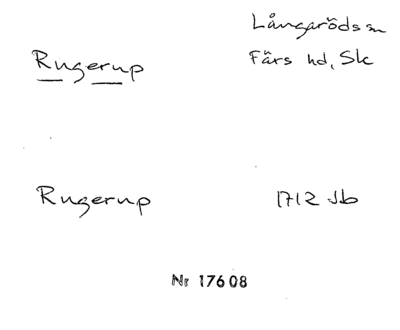 Långaröds sn
Rugerup
Färs hd, Sk
Rugerup 1712 Jb
Nr 17608